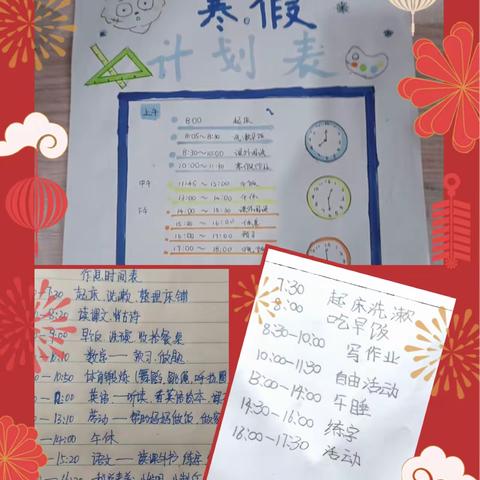 寒假
计划表
上午
8:00 起床
8:05~8:30 洗漱早饭
8:30~10:00 课外阅读
10:00~11:30 寒假作业
中午
11:45~13:00 午饭
13:00~14:00 午休
下午
14:00~15:30 课外阅读
15:30~16:00 休息
16:00~17:00
17:00~18:00
作息时间表
7:30 起床、洗漱、整理床铺
8:20 读课文、背古诗
9:00 早饭、洗碗、收拾餐桌
10:10 数学——预习、做题
10:50 体育锻炼
12:00 英语——听读、看英语绘本
13:10 劳动——帮妈妈做饭
14:00 午休
15:20 语文——读课外书、练字
7:30 起床洗漱
8:00 吃早饭
8:30-10:00 写作业
10:00-11:30 自由活动
13:00-14:00 午睡
14:30-16:00 练字
16:00-17:30 活动